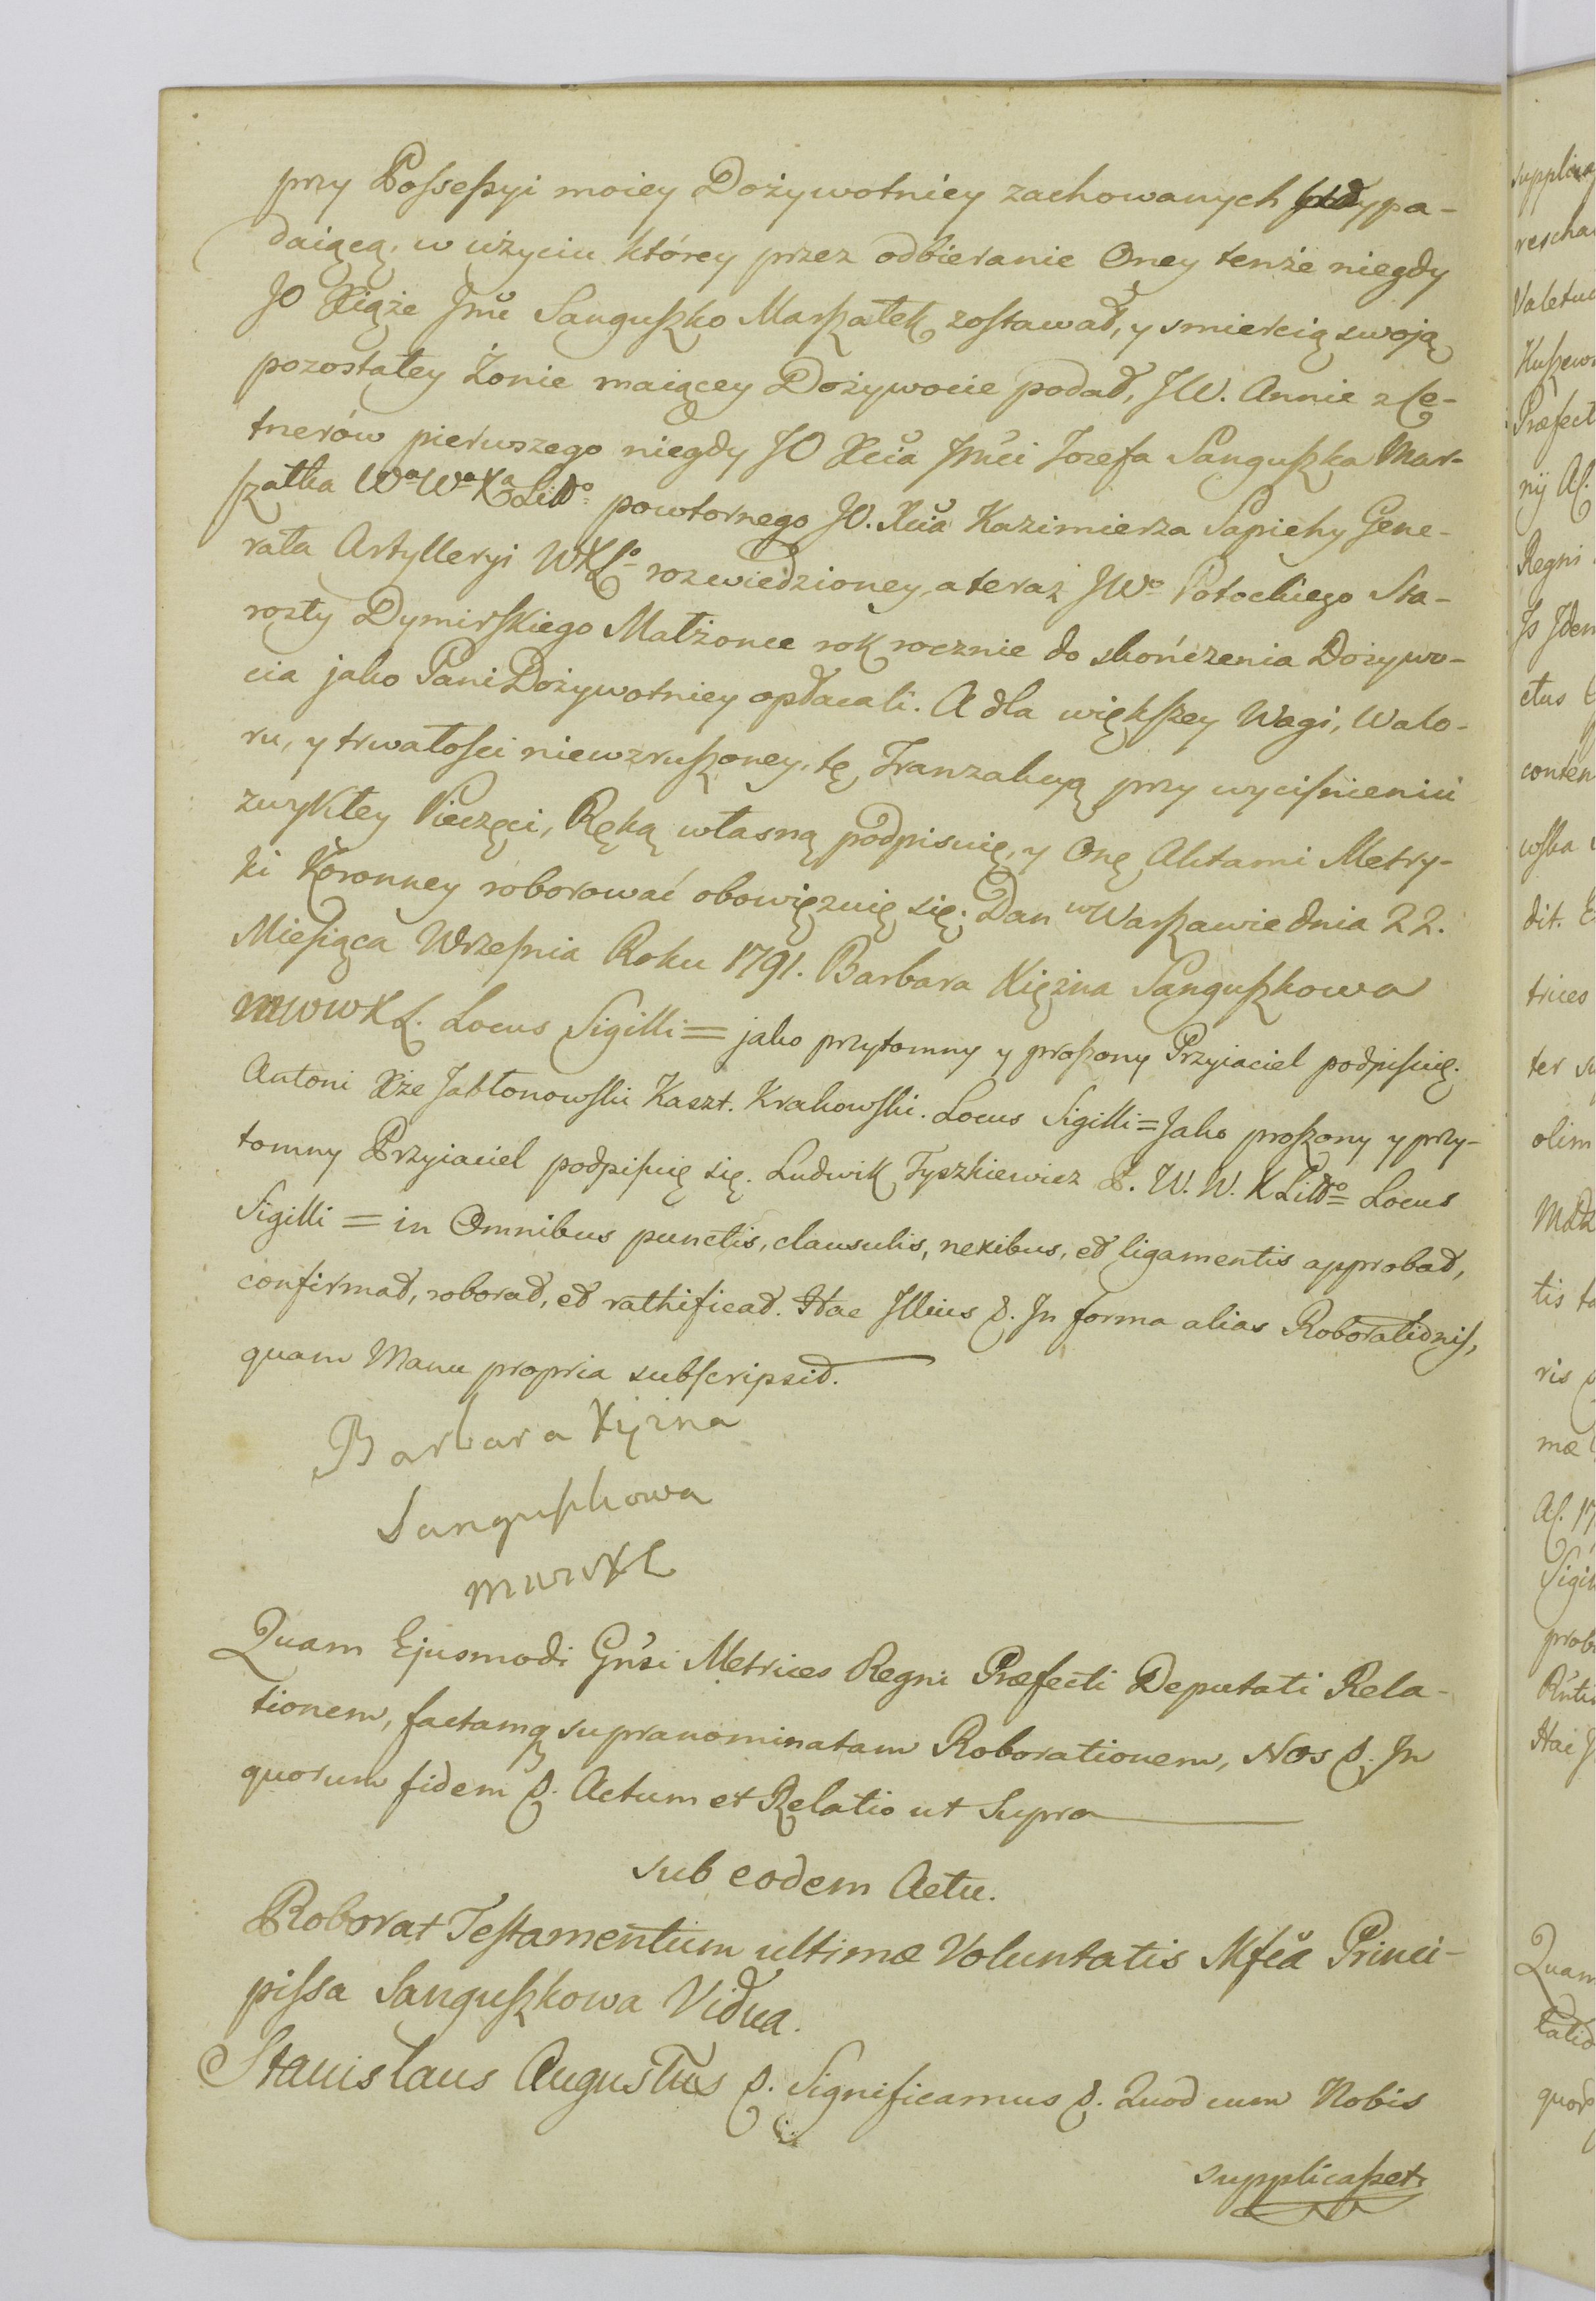 przy Possessyi moiey Dożywotniey zachowanych przypa-
daiącą, w użyciu którey przez odbieranie Oney tenże niegdy
JO Xiąże Jmć Sanguszko Marszałek zostawał, y smiercią swoją
pozostałey Żonie maiącey Dożywocie podał, JW. Annie z Ce-
tnerów pierwszego niegdy JO Xcia Jmći Jozefa Sanguszka Mar-
szałka Wo Wo Xa Litto powtornego JO. Xcia Kazimierza Sapiehy Gene-
rała Artylleryi WXLo rozwiedzioney, a teraz JWo Potockiego Sta-
rosty Dymirskiego Małżonce rok rocznie do skończenia Dożywo-
cia jako Pani Dożywotniey opłacali. A dla większey Wagi, Walo-
ru, y trwałosci niewzruszoney, tę Tranzakcyą przy wycisnieniu
zwykłey Pieczęci, Ręką własną podpisuię, y Onę Aktami Metry-
ki Koronney roborować obowięzuię się. Dan w Warszawie dnia 22.
Miesiąca Wrzesnia Roku 1791. Barbara Xiężna Sanguszkowa
MWWXL. Locus Sigilli = jako przytomny y proszony Przyiaciel podpisuię.
Antoni Xże Jabłonowski Kaszt. Krakowski. Locus Sigilli = Jako proszony y przy-
tomny Przyiaciel podpisuię się. Ludwik Tyszkiewicz P. W. W. X Litto = Locus
Sigilli = in Omnibus punctis, clausulis, nexibus, et ligamentis approbat,
confirmat, roborat, et rathificat. Hac Illius &. In forma alias Roborationis,
quam Manu propria subscripsit.
Barbara Xiężna
Sanguszkowa
MWWXL
Quam Ejusmodi Gnsi Metrices Regni Præfecti Deputati Rela-
tionem, factamq supranominatam Roborationem, Nos &. In
quorum fidem &. Actum et Relatio ut Supra
sub eodem Actu.
Roborat Testamentum ultimæ Voluntatis Mfca Princi-
pissa Sanguszkowa Vidua.
Stanislaus Augustus &. Significamus &. Quod cum Nobis
supplicasset.